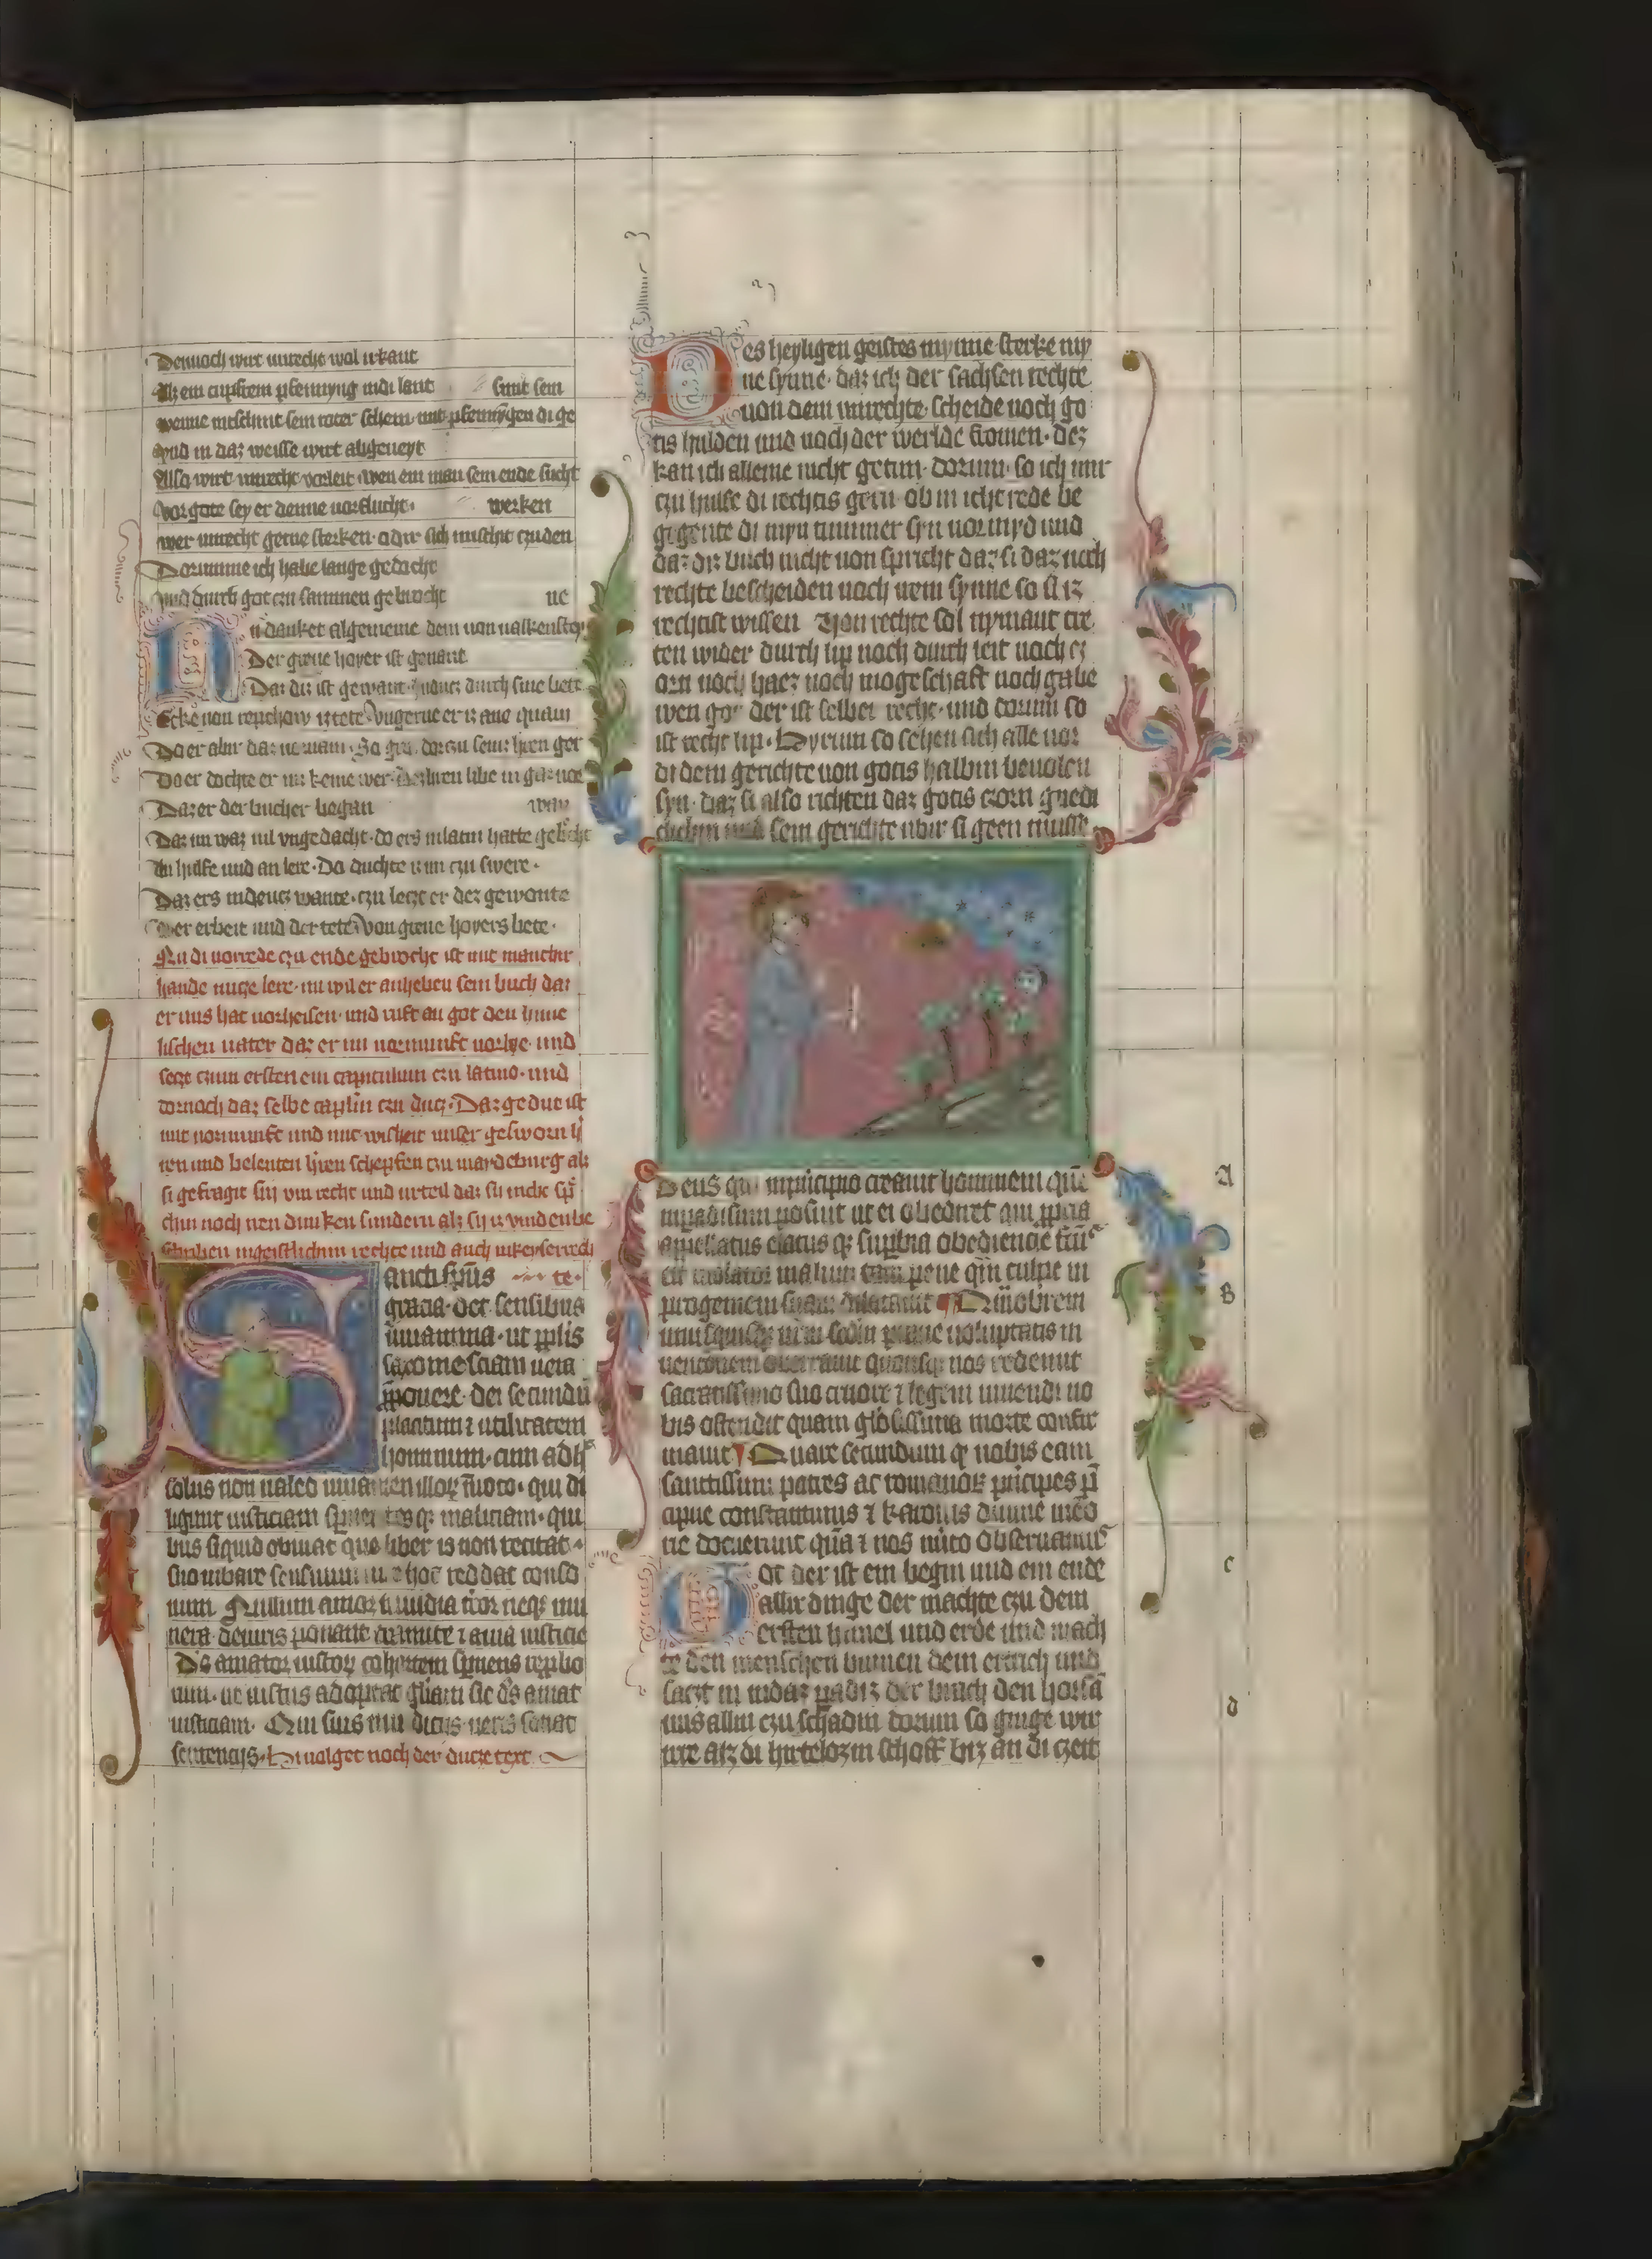 Dennoch wirt unrecht wol irkant
Alz ein cuppfrein pfennyng indi lant sint sein
wenne mischint sein roter schein mit pfennygen di ge
Und in daz weisse wirt abgeneyt
Also wirt unrecht vorleit wen ein man sein ende sucht
Vor gote sey er denne vorflucht werken
wer unrecht gerne sterken adir sich mischit czu den
Dorumme ich habe lange gedacht
und durch got czu sammen gebracht ne
Nu danket algemeine dem von valkenstey
Der greue hoyer ist genant
Daz diz ist gewant an deucz durch sine bete
Ecke von repchow iz tete Vngerne er iz ane quam
Do er abir daz vornam So gros dorczu seinz hern ger
Do er dochte er in keine wer
Daz er der bucher began wan
Daz im waz vil vngedacht do ers in latin hatte gebrocht
An hulfe und an lere Do duchte iz im czu swere
Daz ers in deucz wante czu leczt er dez genante
Der erbeit und der tete Von greue hoyers bete
Nu di vorrede czu ende gebrocht ist mit manchir
hande nucze lere nu wil er anheben sein buch daz
er uns hat vorheisen und ruft an got den hime
lischen vater daz er im vornunft vorlye und
secze czum ersten ein capitulum czu latino und
dornoch daz selbe caplin czu ducz Daz geduct ist
mit vornunft und mit wisheit unser gesworn h
ren und belenten hern schepfen czu mardeburg alz
si gefragit sin vm recht und urteil daz sy nicht sp
chin noch iren dunken sundern alz sy iz vinden be
schriben in geistlichim rechte und auch in keyserrech
Sancti spus te
gracia det sensibus
iuuamina ut pplis
saxonie sciam uera
pponere dei secundu
placitum et utilitatem
hominum cum adh
solus non ualeo iuuamen illoz inuoco qui di
ligunt iusticiam spernentesq maliciam qui
bus siquid obuiat quo liber is non recitat
suo iubare sensuum hoc reddat conso
num Nullum amor inuidia timor neqz mu
nera deuiris ponant tramite et auia iusticie
Ds amator iustoz cohortem spernens repbo
rum ut iustus adoptat gliam sic ds amat
iusticiam Qui suis mu dictis ueris sonat
sentencijs Hi volget noch der ducze text
Des heyligen geistes mynne sterke my
ne synne daz ich der sachsen rechte
von dem unrechte scheide noch go
tis hulden und noch der werlde fromen dez
kan ich alleine nicht getun dorum so ich mir
czu hulfe di rechtis gern ob in icht rede be
gegente di myn tummer syn vormyd und
daz diz buch nicht von spricht daz si daz nach
rechte bescheiden noch irem synne so si iz
rechtist wissen Von rechte sol nymant tre
ten wider durch lip noch durch leit noch cz
orn noch haez noch mogeschaft noch gabe
wen got der ist selber recht und dorum so
ist recht lip Hyrum so sehen sich alle vor
di dem gerichte von gotis halbin bevolen
syn daz si also richten daz gotis czorn gnedi
clichin und sein gerichte ubir si geen musse
Deus qui inpricipio creauit hominem que
inpadisum posuit ut ei obediret qui ppria
appellatus elatus qz supbia obediencie fuit
eit uiolator malum tam pene qm culpe in
progeniem suam dilatauit Quobrem
unusquisqz nrm sectm prauae uoluptatis in
uencionem oberrauit quousqz nos redemit
sacratissimo suo cruore et legem uiuendi no
bis ostendit quam gloriosissima morte confir
mauit Quare secundum q nobis eam
sanctissimi patres ac romanoz pricipes p
cipue constantinus et karolus diuine meo
rie docuerunt qua et nos mito obseruamus
Got der ist ein begin und ein ende
allir dinge der machte czu dem
ersten himel und erde und mach
te den menschen binnen dem ertrich und
saczt in indaz padiz der brach den horsa
uns allin czu schadin dorum so ginge wir
irre alz di hirtelozin schoff biz an di czeit
A
B
c
d